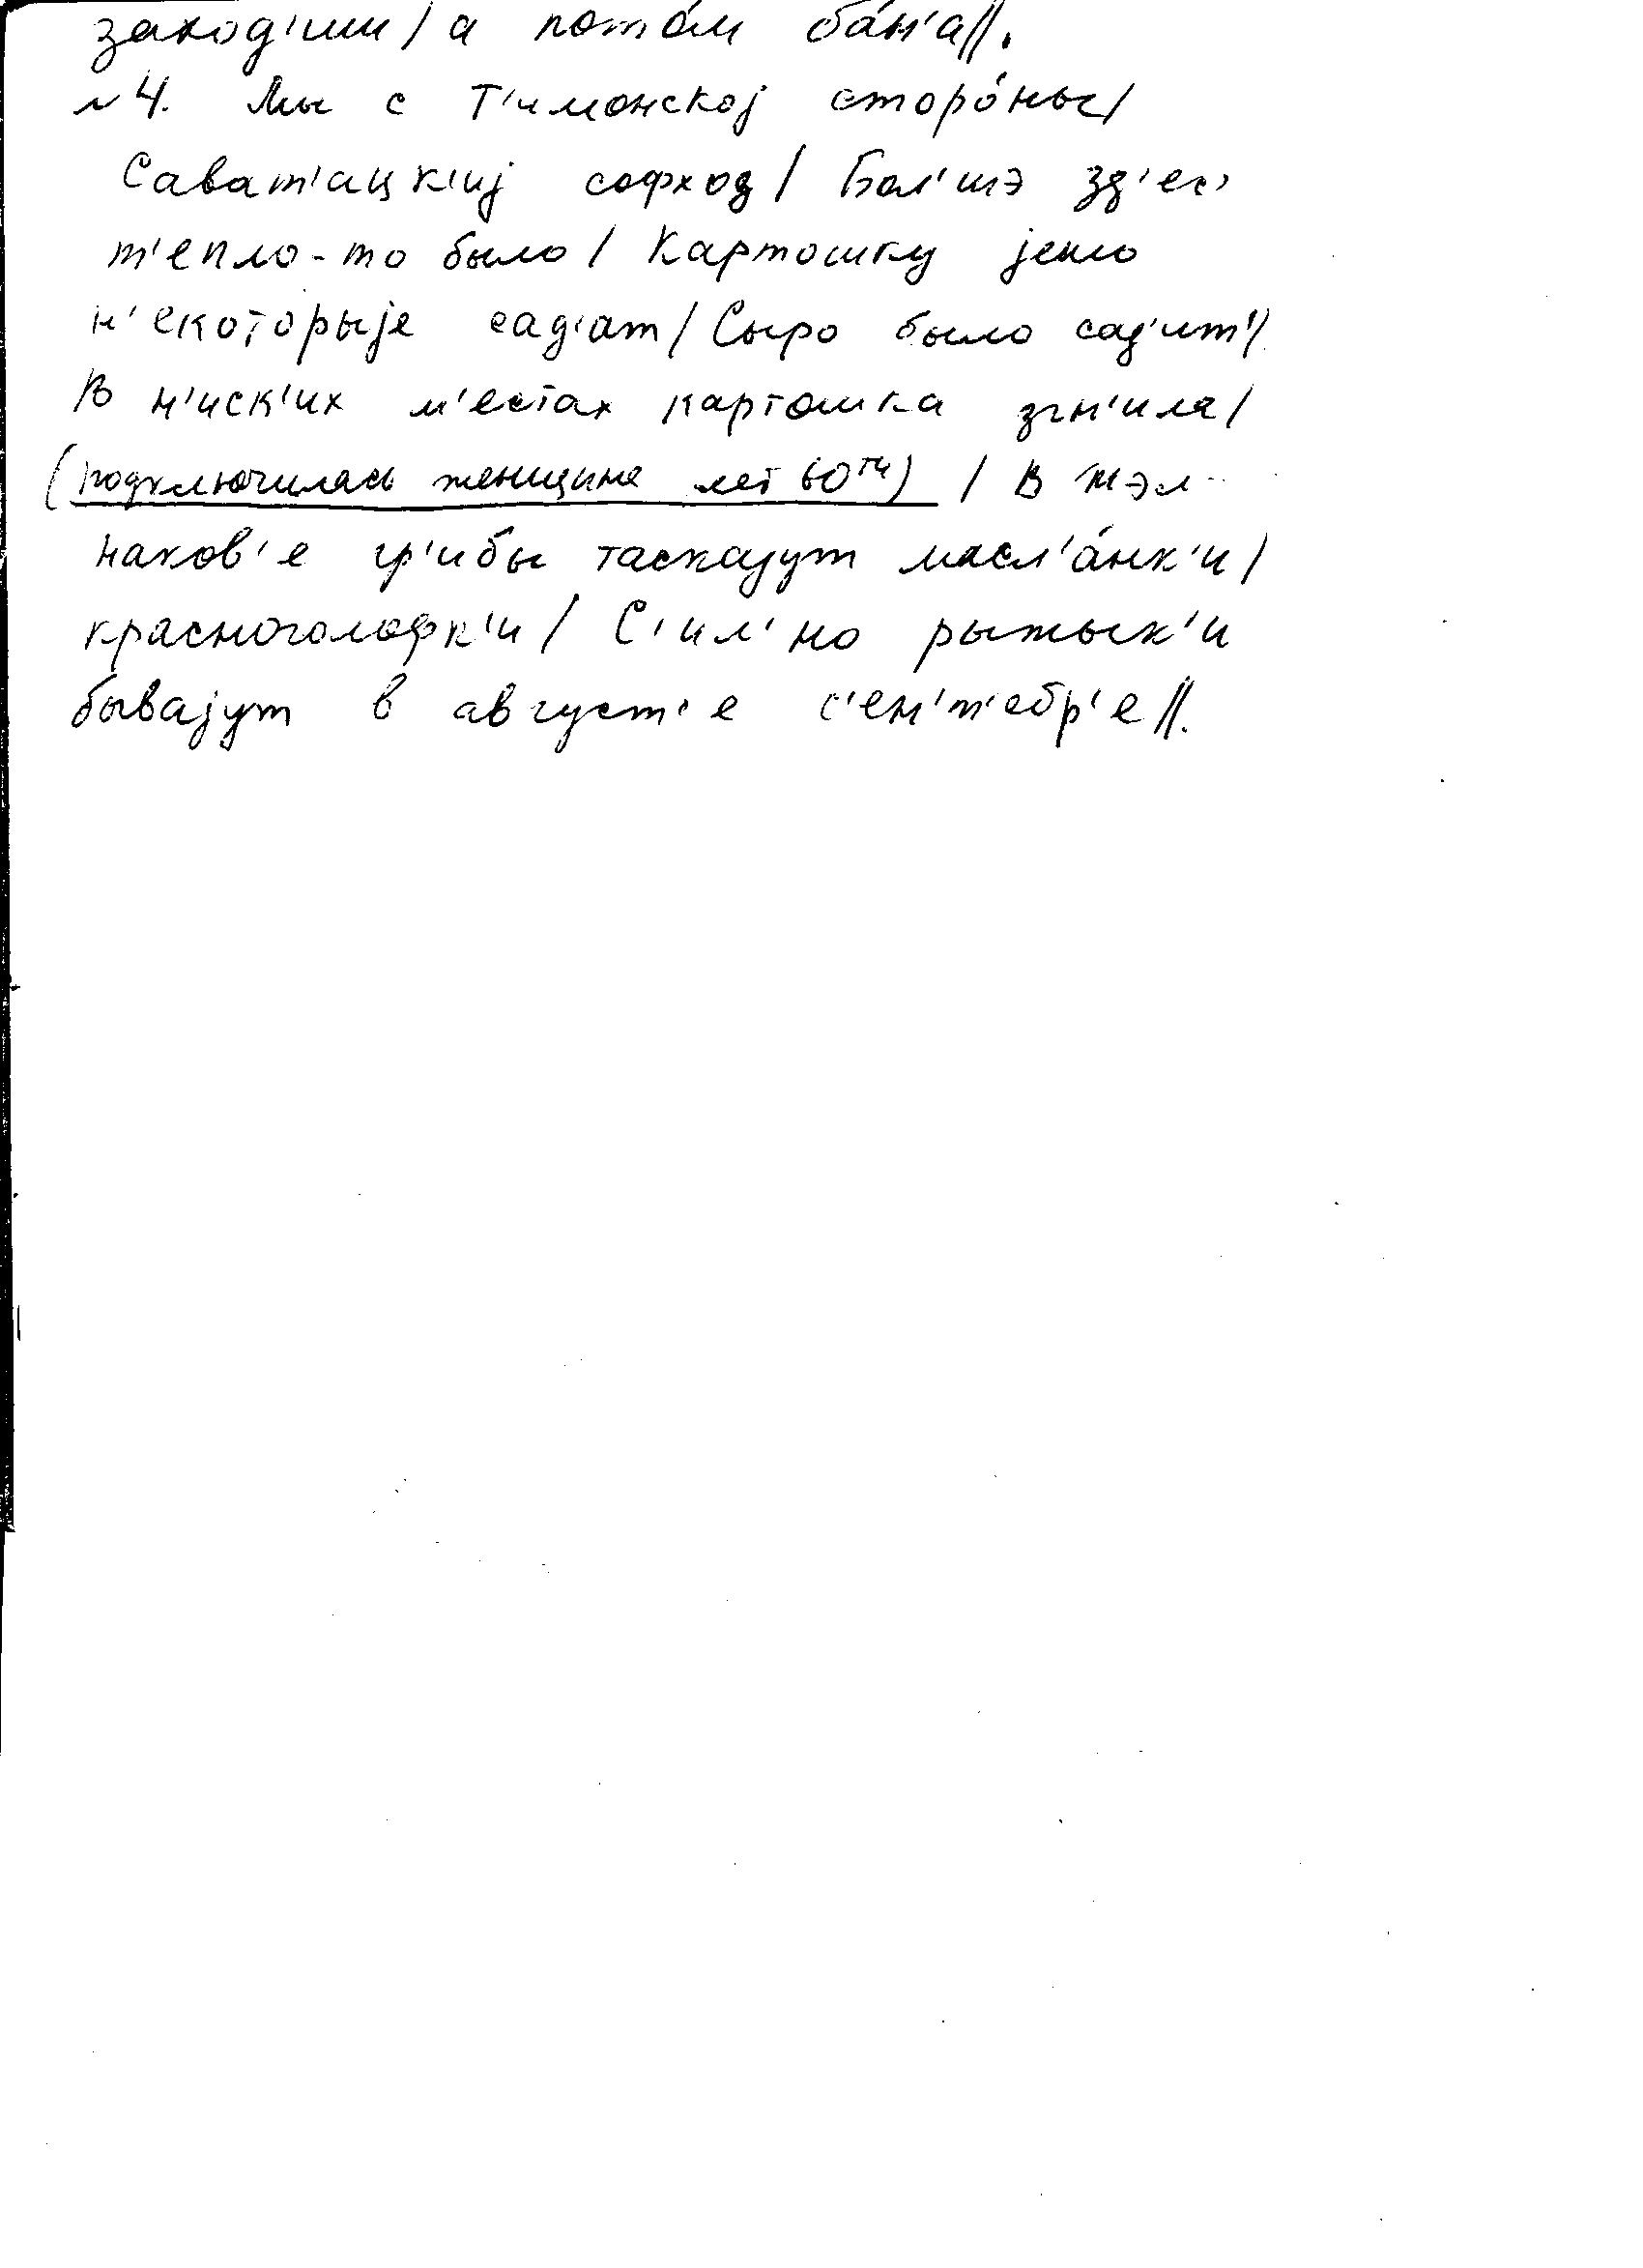 заход'или / а пото́м ба́н'а //.
№4. Мы с Т'имонскоj сторо́ны /
Сават'ацк'иj софход / Бол'шэ зд'ес'
т'епло-то было / Картошку
н'екоторыjе сад'ат / Сыро было сад'ит' /
В н'иск'их м'естах картошка згн'ила /
(подключилась женщина лет 60ти) / В жэл-
наков'е гр'ибы таскаjут масл'а́нк'и /
красноголофк'и / С'ил'но рыжык'и
бываjут в август'е с'ен'т'ебр'е //.